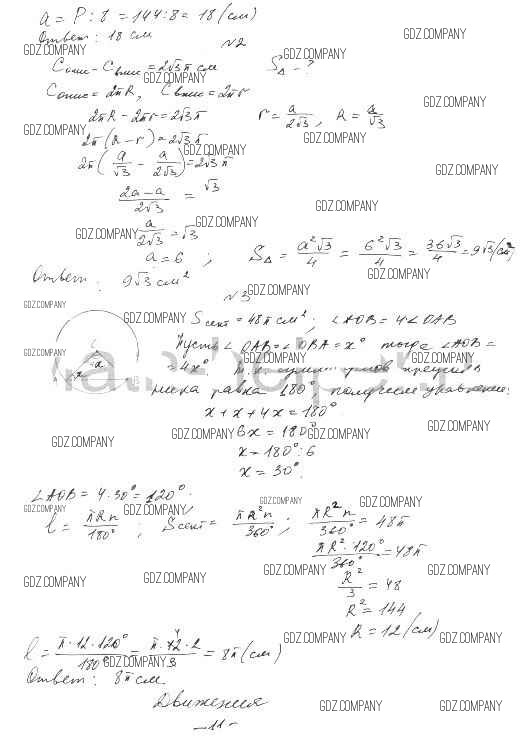 a = P : 8 = 144 : 8 = 18 (см)
Ответ: 18 см
N2
Cопис - Cвпис = 2√3 π см    S△ - ?
Cопис = 2πR, Cвпис = 2πr
2πR - 2πr = 2√3 π    r = a/(2√3), R = a/√3
2π(R - r) = 2√3 π
2π(a/√3 - a/(2√3)) = 2√3 π
(2a - a)/(2√3) = √3
a/(2√3) = √3
a = 6 ; S△ = a²√3/4 = 6²√3/4 = 36√3/4 = 9√3 (см²)
Ответ: 9√3 см²
N3
Sсект = 48π см² ; ∠AOB = 4∠OAB
Пусть ∠OAB = ∠OBA = x° тогда ∠AOB =
= 4x°. Т.к. сумма углов треуголь-
ника равна 180° получим уравнение:
x + x + 4x = 180°
6x = 180°
x = 180° : 6
x = 30°.
∠AOB = 4·30° = 120°.
l = πRn/180° ; Sсект = πR²n/360° ; πR²n/360° = 48π
πR²·120°/360° = 48π
R²/3 = 48
R² = 144
R = 12 (см)
l = π·12·120°/180° = π·12·2/3 = 8π (см)
Ответ: 8π см
Движения
-11-
GDZ.COMPANY